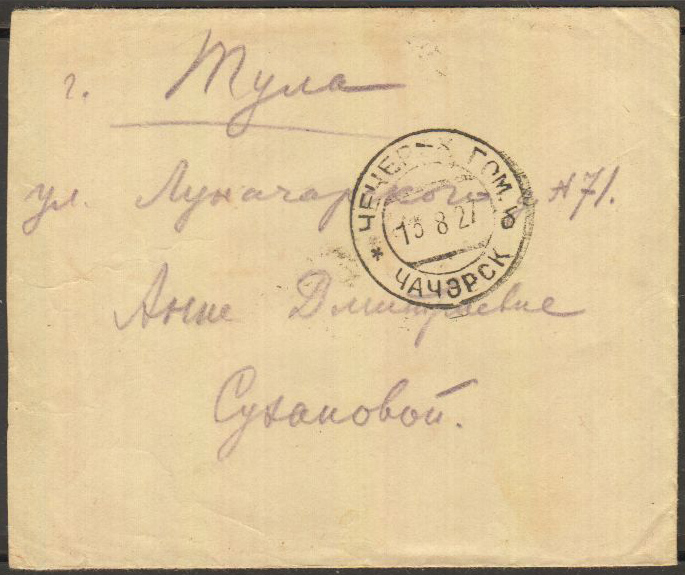 г. Тула
ул. Луначарского, №71.
Анне Дмитриевне
Сухановой.
ЧЕЧЕРСК ГОМ.
13 8 27
ЧАЧЭРСК